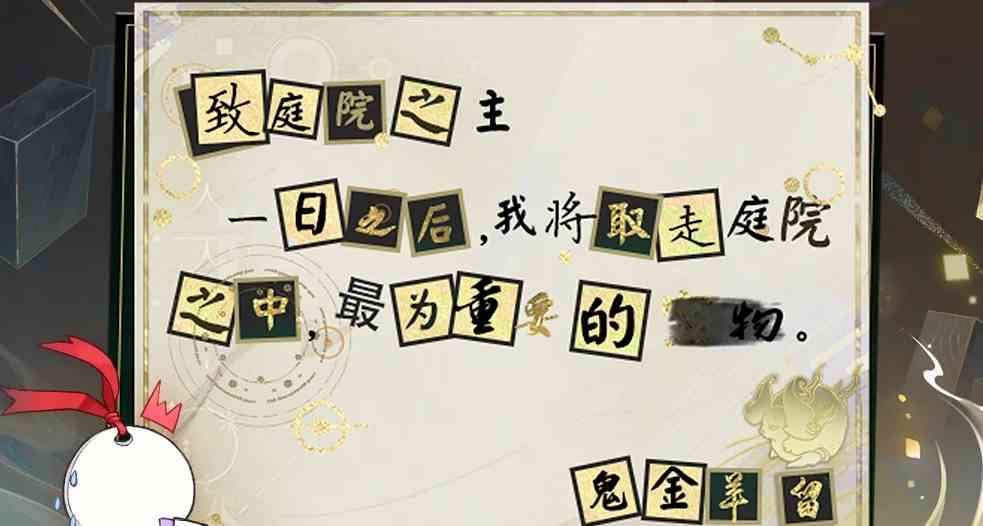 致庭院之主
一日之后,我将取走庭院
之中,最为重要的 物。
鬼金羊 留